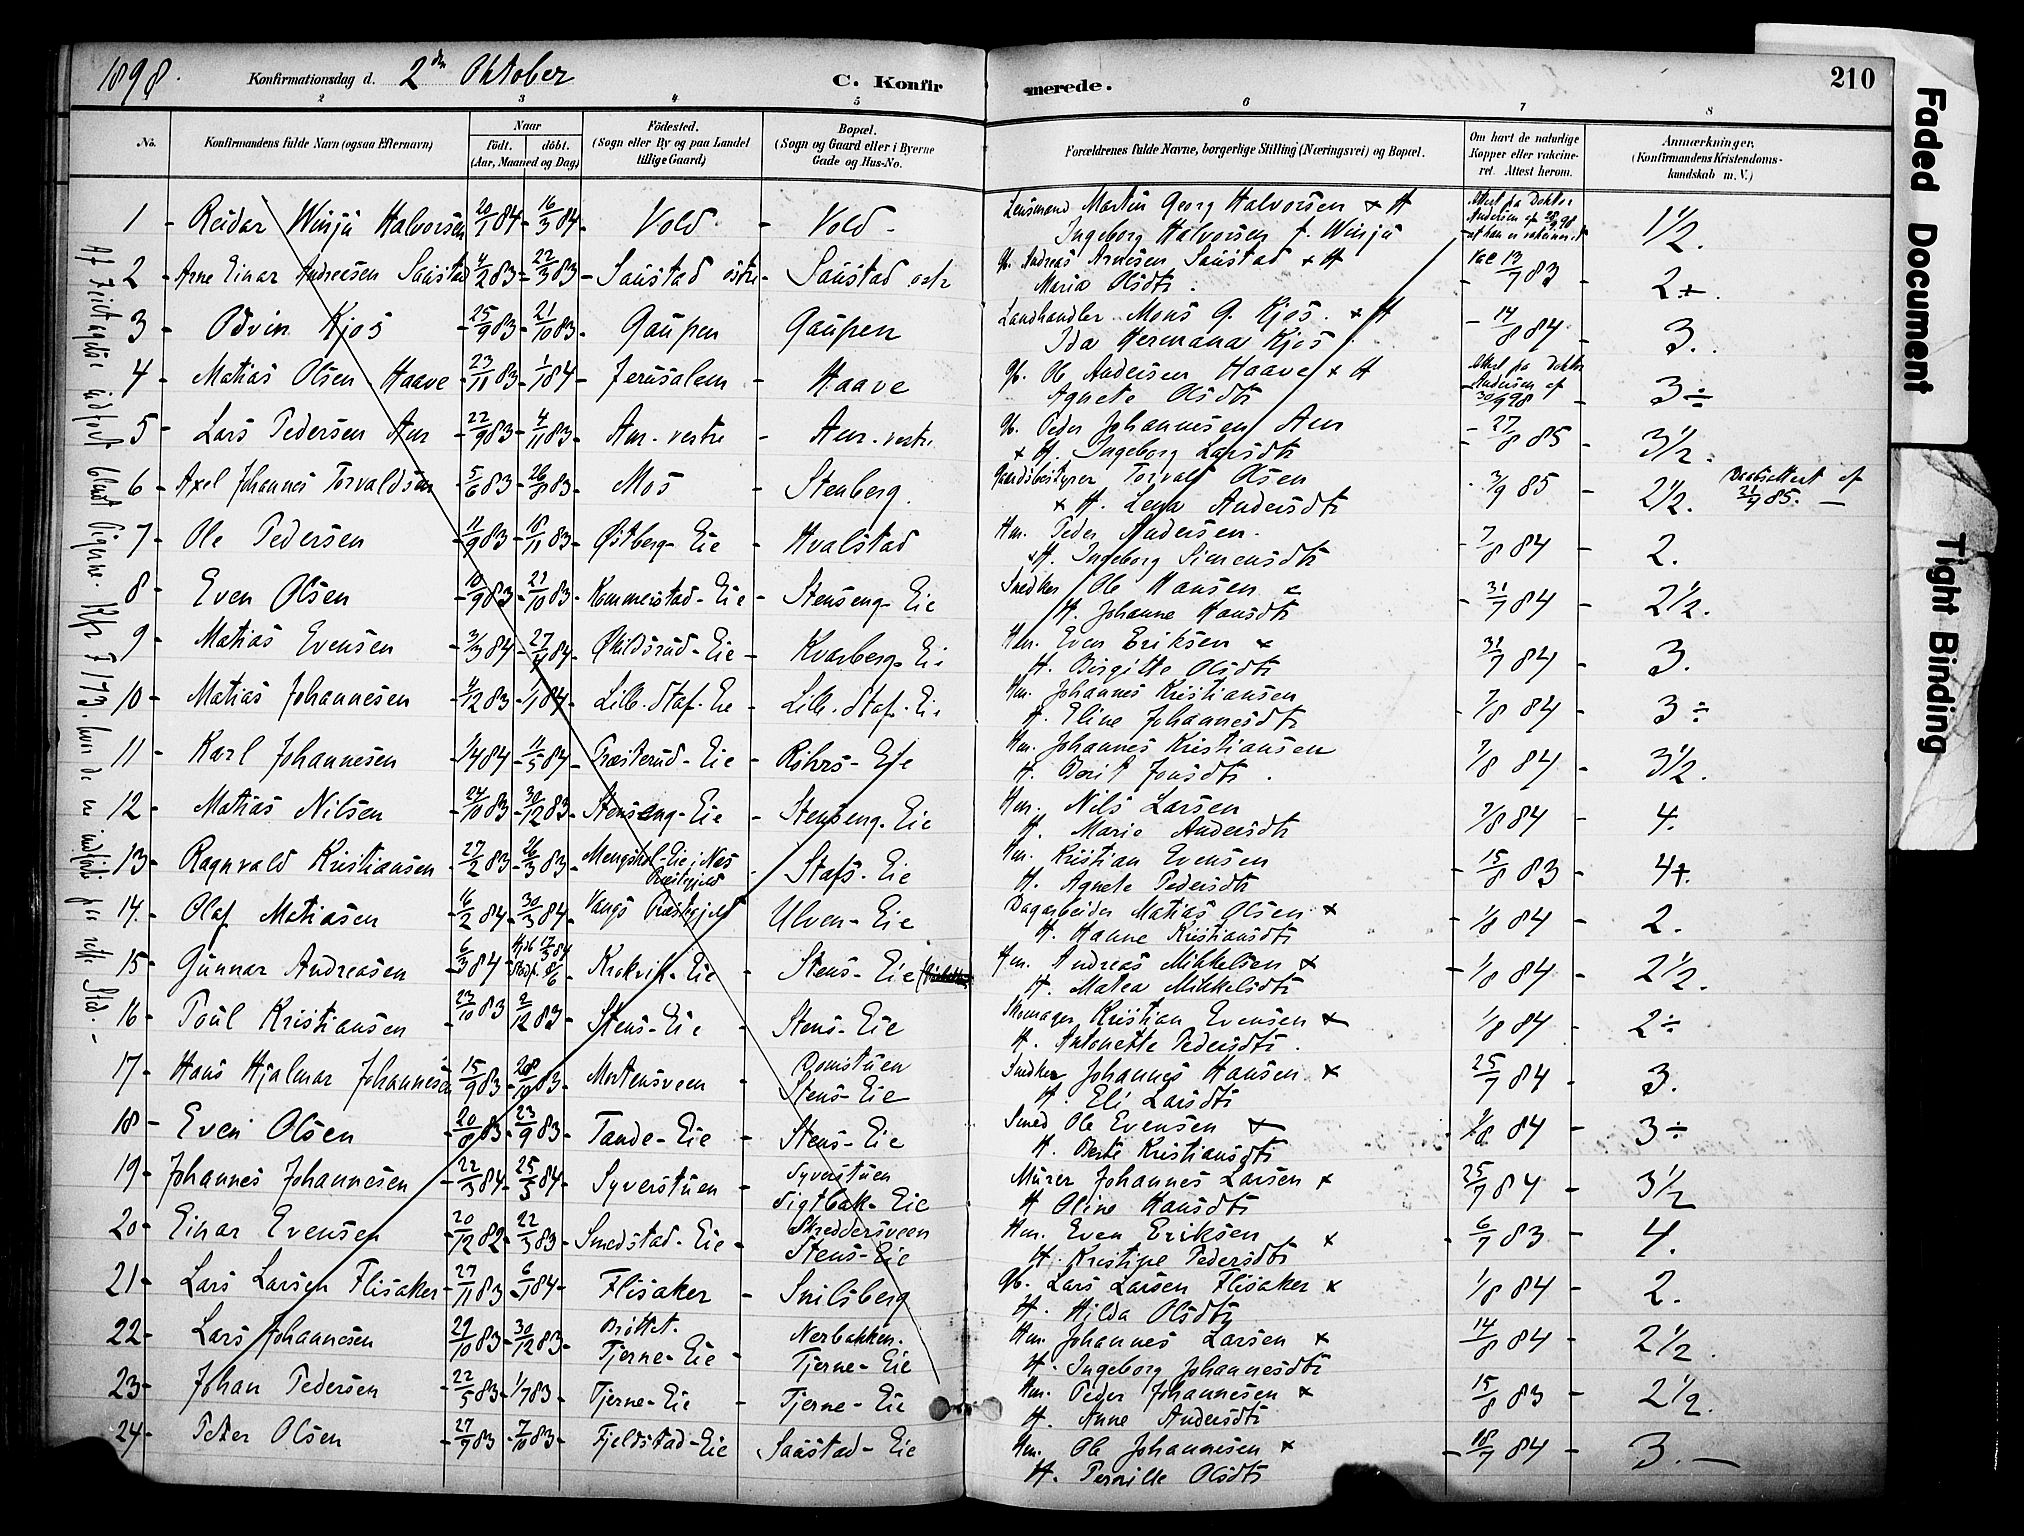 1898.
Konfirmationsdag d. 2den Oktober
C. Konfirmerede.
210
No.
2 Konfirmandens fulde Navn (ogsaa Efternavn)
3 Naar födt. döbt. (Aar, Maaned og Dag)
4 Födested. (Sogn eller By og paa Landet tillige Gaard)
5 Bopæl. (Sogn og Gaard eller i Byerne Gade og Hus-No.
6 Forældrenes fulde Navne, borgerlige Stilling (Næringsvei) og Bopæl.
7 Om havt de naturlige Kopper eller vakcineret. Attest herom.
8 Anmærkninger. (Konfirmandens Kristendomskundskab m. V.)
1 - Reidar Winjü Halvorsen - 20/1 84 - 16/3 84 - Vold - Vold - Lensmand Martin Georg Halvorsen & H Ingeborg Halvorsen f. Winjü - Attest fra Doktor Andersen af 98 at han er vakcineret 1 1/2.
2 - Arne Einar Andreesen Saüstad 4/2 83 - 22/3 83 - Saüstad östre - Saüstad östr - Gb. Andreas Arnesen Saüstad & H Maria Olsdtr. - Vac 13/7 83 - 2+.
3 - Odvin Kjos - 25/9 83 - 21/10 83 - Gaüpen - Gaüpen - Landhandler Mons G. Kjos. & H Ida Hermana Kjos. - 14/8 84 - 3.
4 - Matias Olsen Haave - 23/11 83 - 1/1 84 - Jerüsalem - Haave - Gb. Ole Andersen Haave & H Agnete Olsdtr - Attest fra Doktor Andersen af 30/9 98 - 3÷
5 - Lars Pedersen Aur - 22/9 83 - 4/11 83 - Aur-vestre - Aur-vestr. - Gb. Peder Johannesen Aur & H. Ingeborg Larsdtr - 27/8 85 - 3 1/2.
6 - Axel Johannes Torvaldsen - 5/6 83 - 26/8 83 - Mos - Stenberg. - Gaardsbestyrer Torvald Olsen & H. Lena Andersdtr - 3/9 85 - 2 1/2. Daabsattest af 21/9 85. -
7 - Ole Pedersen - 11/9 83 - 18/11 83 - Østberg-Eie - Hvalstad - Hm. Peder Andersen. & H. Ingeborg Simensdtr - 7/8 84 - 2.
8 - Even Olsen - 10/9 83 - 21/10 83 - Kommerstad-Eie - Stenseng-Eie - Snedker Ole Hansen & H. Johanne Hansdtr - 31/7 84 - 2 1/2.
9 - Matias Evensen - 3/3 84 - 27/4 84 - Økildsrud-Eie - Kvarberg-Ei - Hm. Even Eriksen & H. Birgitte Olsdtr - 31/7 84 - 3.
10 - Matias Johannesen - 4/12 83 - 1/1 84 - Lille-Staf-Eie - Lille-Staf-Ei - Hm. Johannes Kristiansen H. Eline Johannesdtr - 7/8 84 - 3÷
11 - Karl Johannesen - 1/4 84 - 11/5 84 - Præsterud-Eie - Röhrs-Eie - Hm. Johannes Kristiansen H. Berit Jonsdtr. - 7/8 84 - 3 1/2.
12 - Matias Nilsen - 24/10 83 - 30/12 83 - Stenseng-Eie - Stenseng-Eie - Hm. Nils Larsen H. Marie Andersdtr - 7/8 84 - 4.
13 - Ragnvald Kristiansen - 27/2 83 - 26/3 83 - Mengshol-Eie i Nes Præstegjeld - Stafs-Eie - Hm. Kristian Evensen H. Agnete Pedersdtr - 15/8 83 - 4+.
14. - Olaf Matiasen - 16/2 84 - 30/3 84 - Vangs Præstegjeld - Ulven-Eie - Dagarbeider Matias Olsen & H. Hanne Kristiansdtr - 1/8 84 - 2.
15 - Günnar Andreasen - 6/3 84 - Hjdb 17/3 84 Stadf. 8/6 - Krakvik-Eie - Stens-Eie - Hm. Andreas Mikkelsen & H. Matea Mikkelsdtr - 1/8 84 - 2 1/2.
16 - Poül Kristiansen - 23/10 83 - 2/12 83 - Stens-Eie - Stens-Eie - Skomager Kristian Evensen & H. Antonette Pedersdtr. - 1/8 84 - 2÷
17 - Hans Hjalmar Johannesen - 15/9 83 - 28/10 83 - Mortensveen - Stens-Eie - Snedker Johannes Hansen & H. Eli Larsdtr - 25/7 84 - 3.
18 - Even Olsen - 20/8 83 - 23/9 83 - Tande-Eie - Stens-Eie - Smed Ole Evensen & H. Berte Kristiansdtr - 1/8 84 - 3÷
19 - Johannes Johannesen - 22/3 84 - 25/5 84 - Syverstüen - Syverstüen Sigtbak-Eie - Mürer Johannes Larsen & H Oline Hansdtr - 25/7 84 - 3 1/2
20 - Einar Evensen - 20/12 82 - 22/3 83 - Smedstad-Eie - Skreddersveen Stens-Eie - Hm. Even Eriksen & H. Kristine Pedersdtr - 6/7 83 - 4.
21 - Lars Larsen Flisaker - 27/11 83 - 6/1 84 - Flisaker - Snilsberg - Gb. Lars Larsen Flisaker & H. Hilda Olsdtr - 1/8 84 - 2.
22 - Lars Johannesen - 29/10 83 - 30/12 83 - Bröttet. Tjerne-Eie - Nerbakken. Tjerne-Eie - Hm. Johannes Larsen & H. Ingeborg Johannesdtr - 14/8 84 - 2 1/2.
23 - Johan Pedersen - 22/5 83 - 1/7 83 - Tjerne-Eie - Tjerne-Eie - Hm. Peder Johannesen & H. Anne Andersdtr - 15/8 83 - 2 1/2.
24 - Peter Olsen - 27/9 83 - 7/10 83 - Fjeldstad-Eie - Saüstad-Eie - Hm. Ole Johannesen & H. Pernille Olsdtr - 18/7 84 - 3. -
Af Feiltagelse indfört blandt Pigerne.
Faded Document
Tight Binding